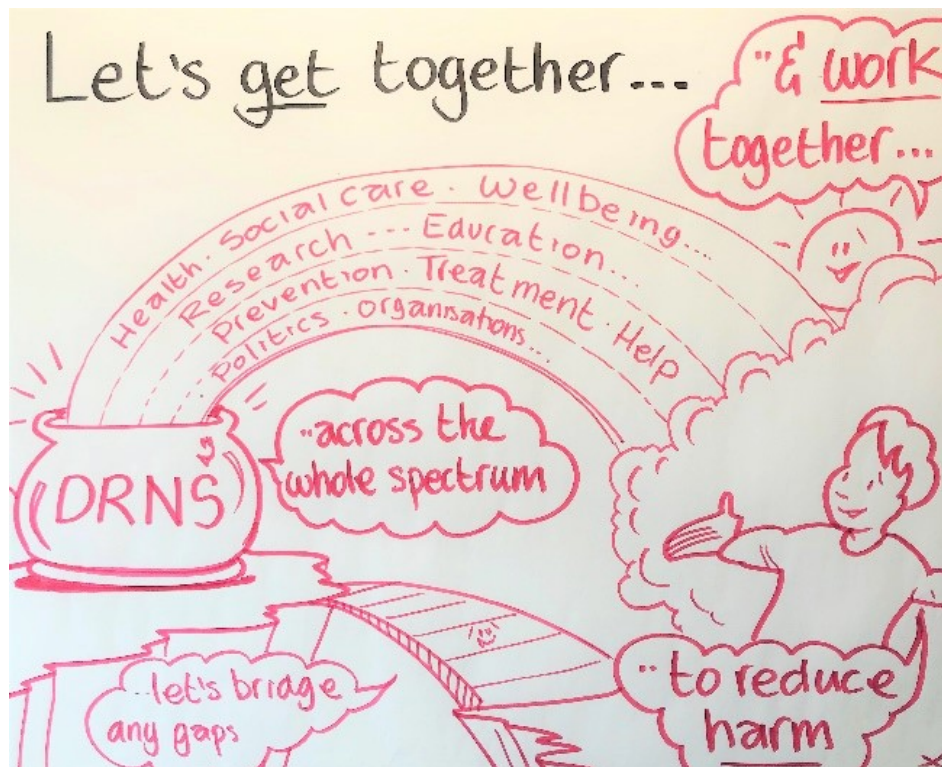 Let's get together...
"& work
together...
Health · Social care · Wellbeing...
Research --- Education...
Prevention · Treatment · Help
Politics · Organisations...
DRNS
"across the
whole spectrum
...let's bridge
any gaps
"to reduce
harm